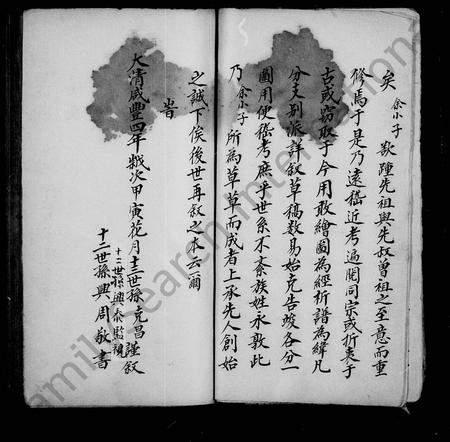 矣余小子敢踵先祖與先叔曾祖之至意而重
修焉于是乃遠嵇近考遍閱同宗或折衷于
古或竊取于今用敢繪圖為經析譜為緯凡
分支別派詳叙草稿数易始克告竣各分一
圖用便稽考庶乎世系不紊族姓永敦此
乃余小子所為草草而成者上承先人創始
之誠下俟後世再叙之本云爾
旹
大清咸豐四年歲次甲寅花月十三世孫克昌謹叙
十二世孫興泰監視
十二世孫興周敬書